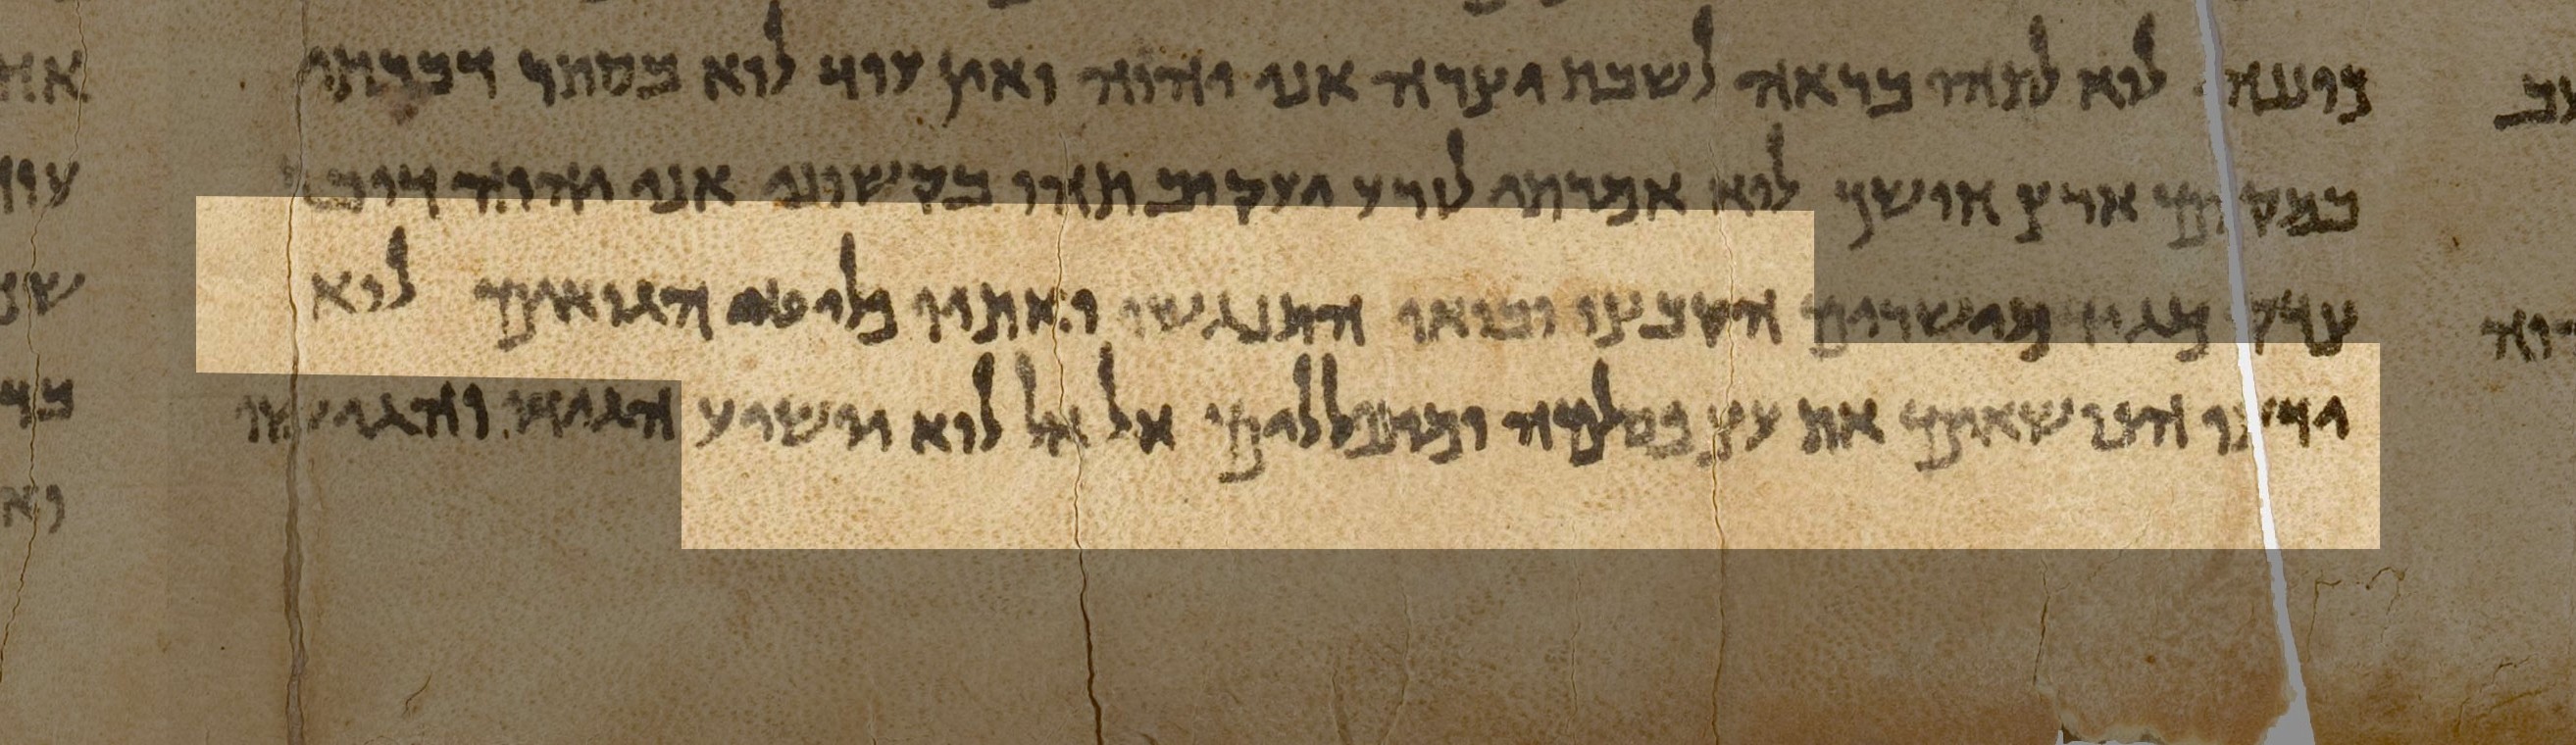 כוננה לוא לתהו בראה לשבת יצרה אני יהוה ואין עוד לוא בסתר דברתי
במקום ארץ חושך לוא אמרתי לזרע יעקוב תהו בקשוני אני יהוה דובר
צדק מגיד מישרים הקבצו ובואו התנגשו ואתיו פליטי הגואים לוא
ידעו הנושאים את עץ פסלמה ומתפללים אל אל לוא יושיע הגידו והגישו